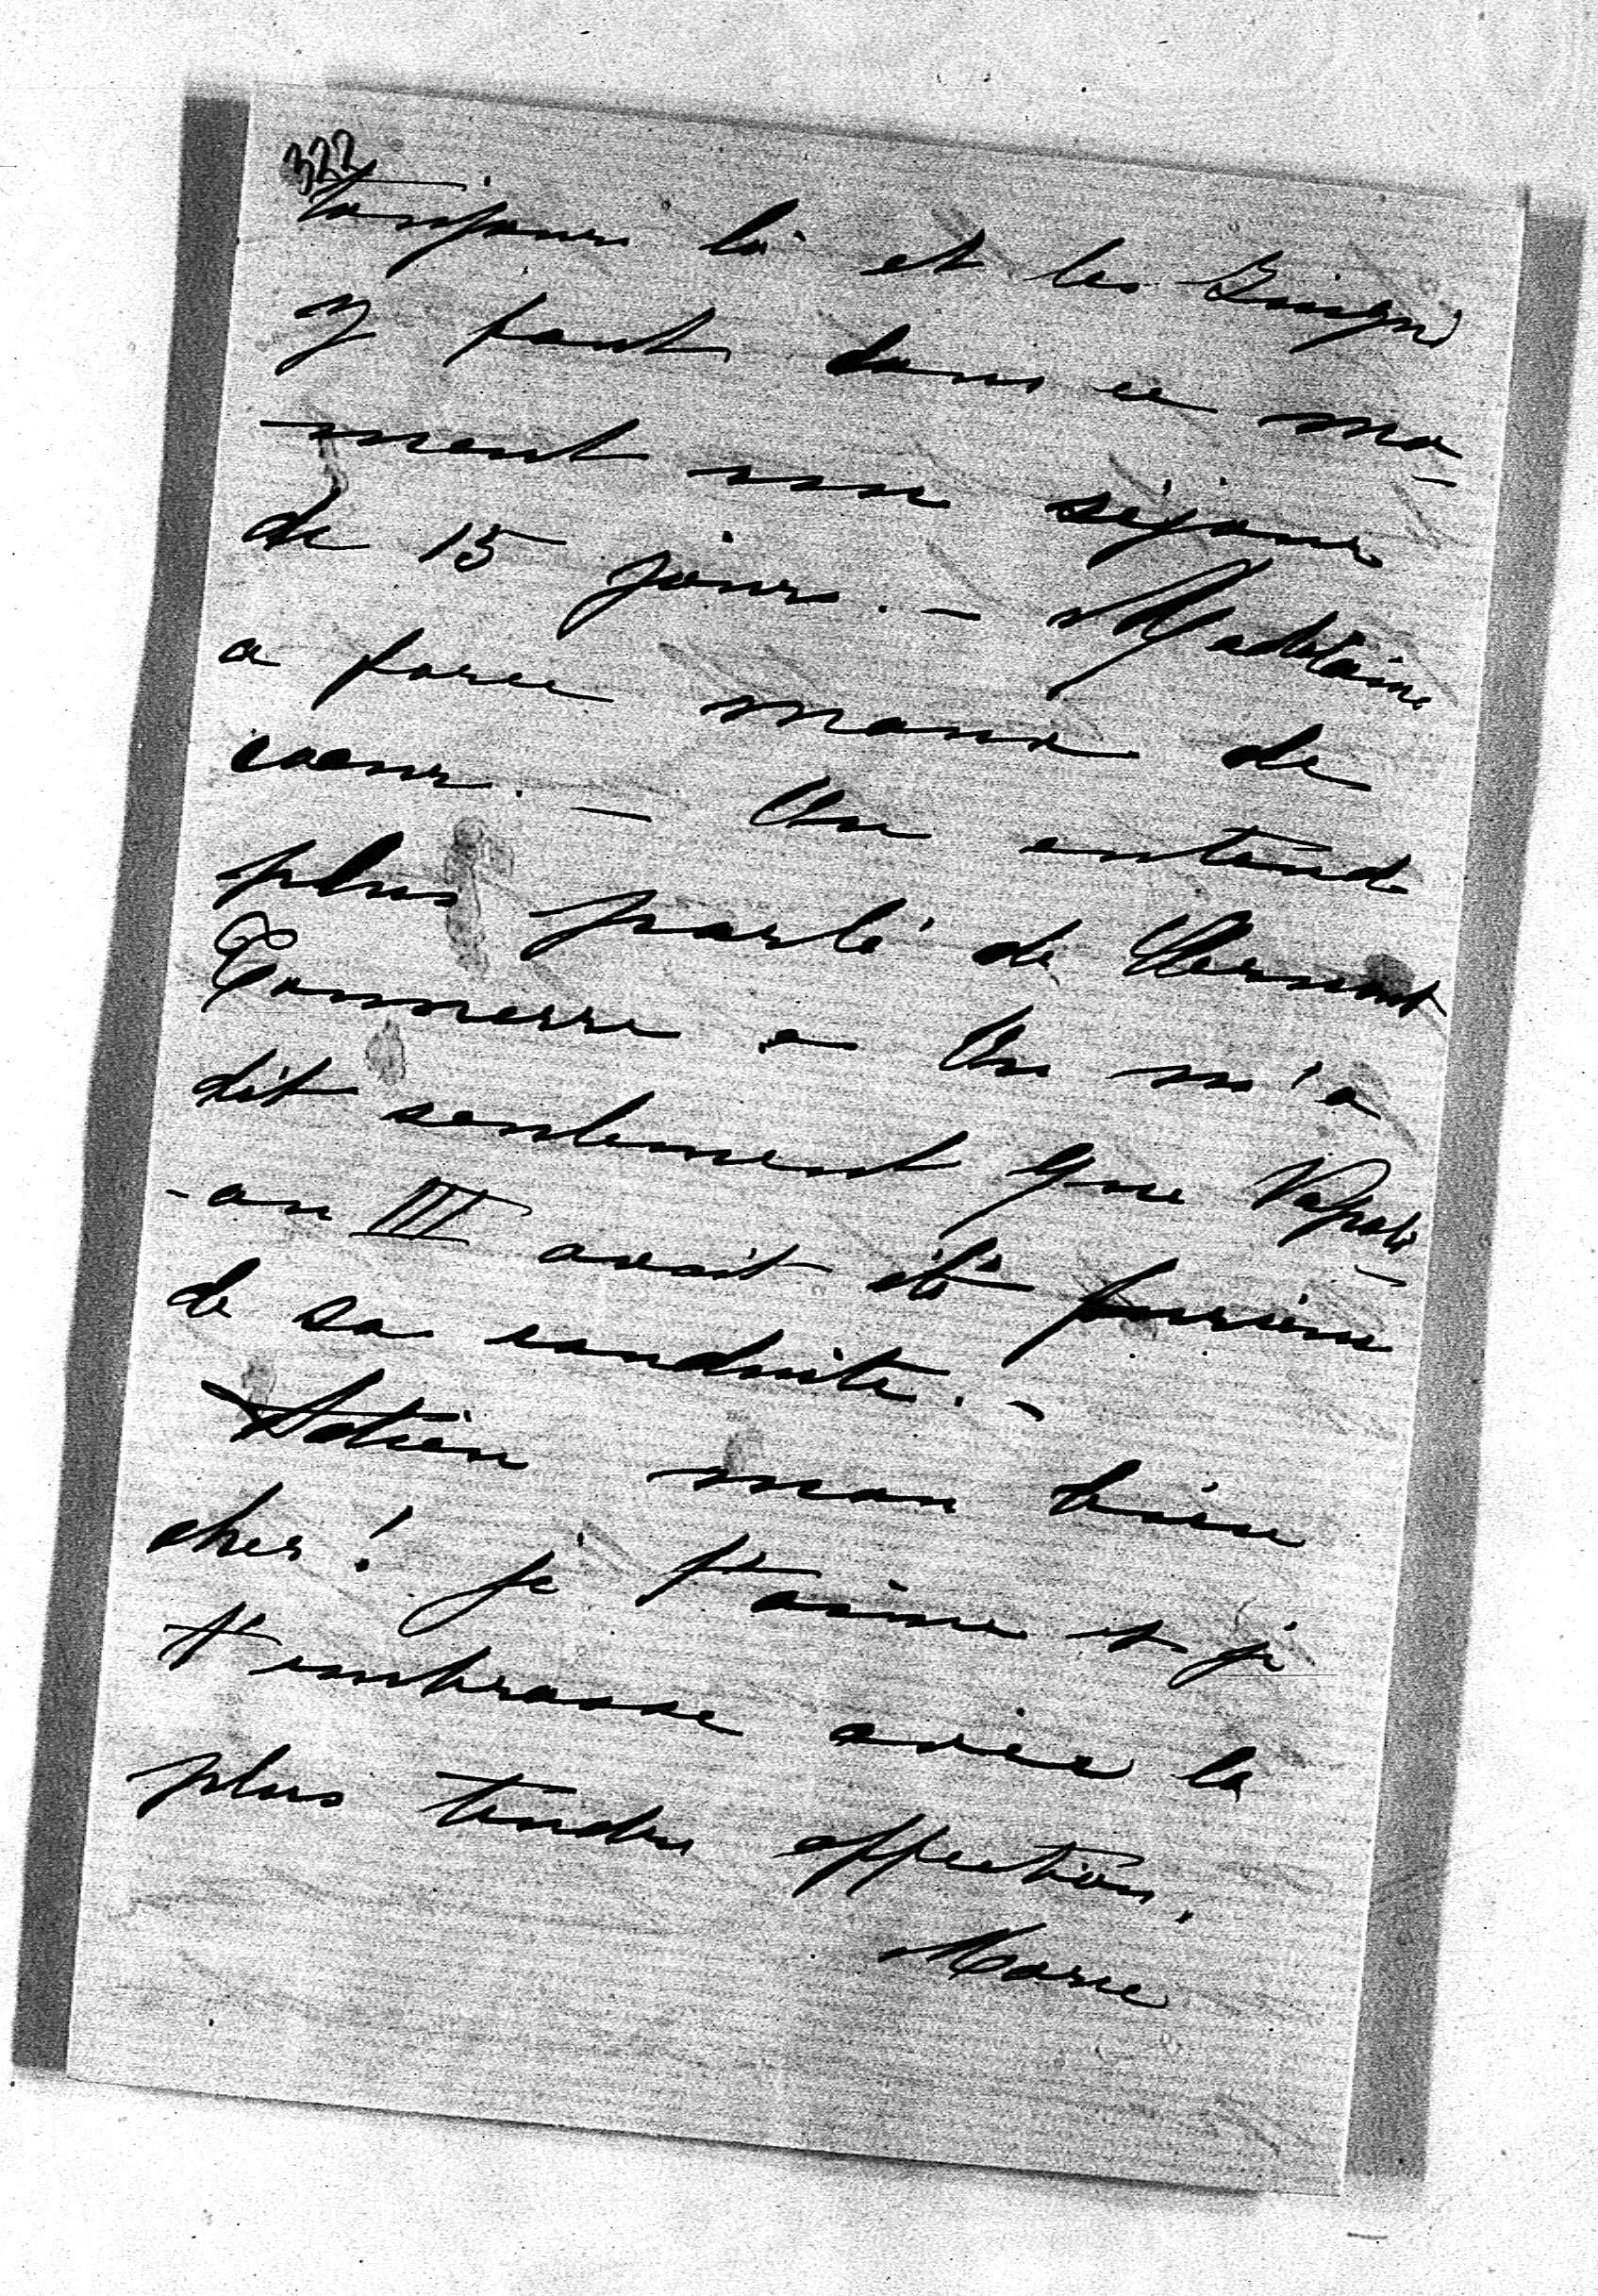 322
toujours là et les
y font dans ce mo-
-ment une séjour
de 15 jours. — Madelaine
a force maux de
coeur. — On entend
plus parlé de Clermont
Tonnerre — On m'a
dit seulement que Napolé-
-on III avait été furieux
de sa conduite. —
Adieu mon bien
cher! je t'aime et je
t'embrasse avec la
plus tendre affection.
Marie